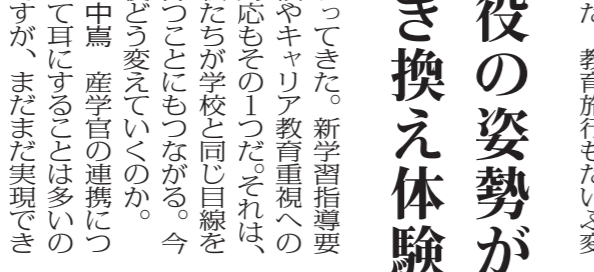 た。教育旅行もだいぶ変
役の姿勢が
き換え体験
ってきた。新学習指導要
やキャリア教育重視への
応もその1つだ。それは、
たちが学校と同じ目線を
つことにもつながる。今
どう変えていくのか。
中嶌　産学官の連携につ
て耳にすることは多いの
すが、まだまだ実現でき